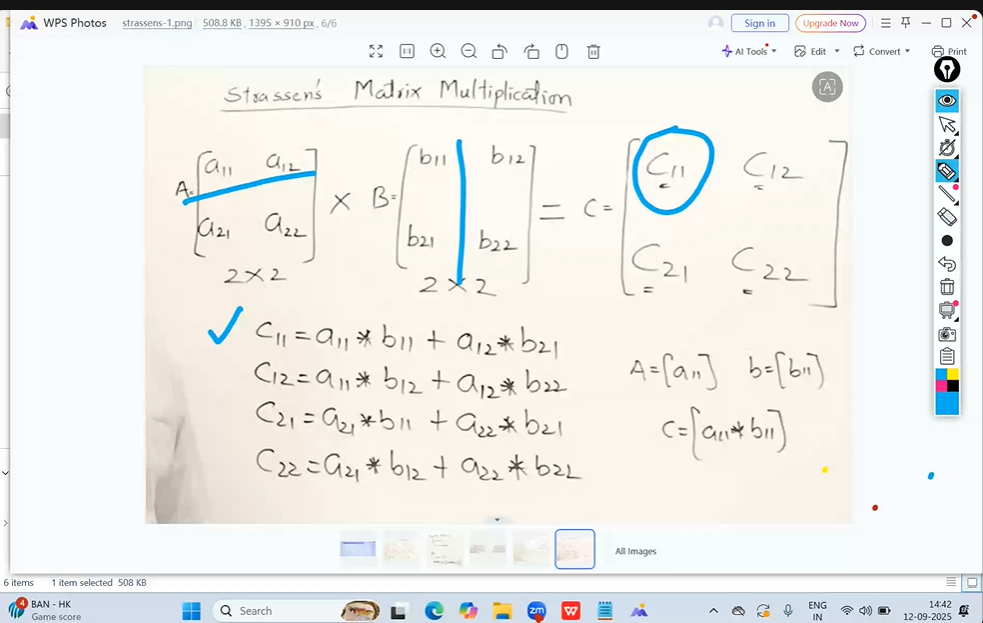 WPS Photos strassens-1.png 508.8 KB, 1395 × 910 px, 6/6 Sign in Upgrade Now
AI Tools Edit Convert Print
Strassen's Matrix Multiplication
A= [a11 a12 a21 a22] × B= [b11 b12 b21 b22] = C= [C11 C12 C21 C22]
2×2 2×2
C11=a11*b11 + a12*b21
C12=a11*b12 + a12*b22
C21=a21*b11 + a22*b21
C22=a21*b12 + a22*b22
A=[a11] b=[b11]
C=[a11*b11]
All Images
6 items 1 item selected 508 KB
BAN - HK
Game score
4
Search
zm
W
ENG
IN
14:42
12-09-2025